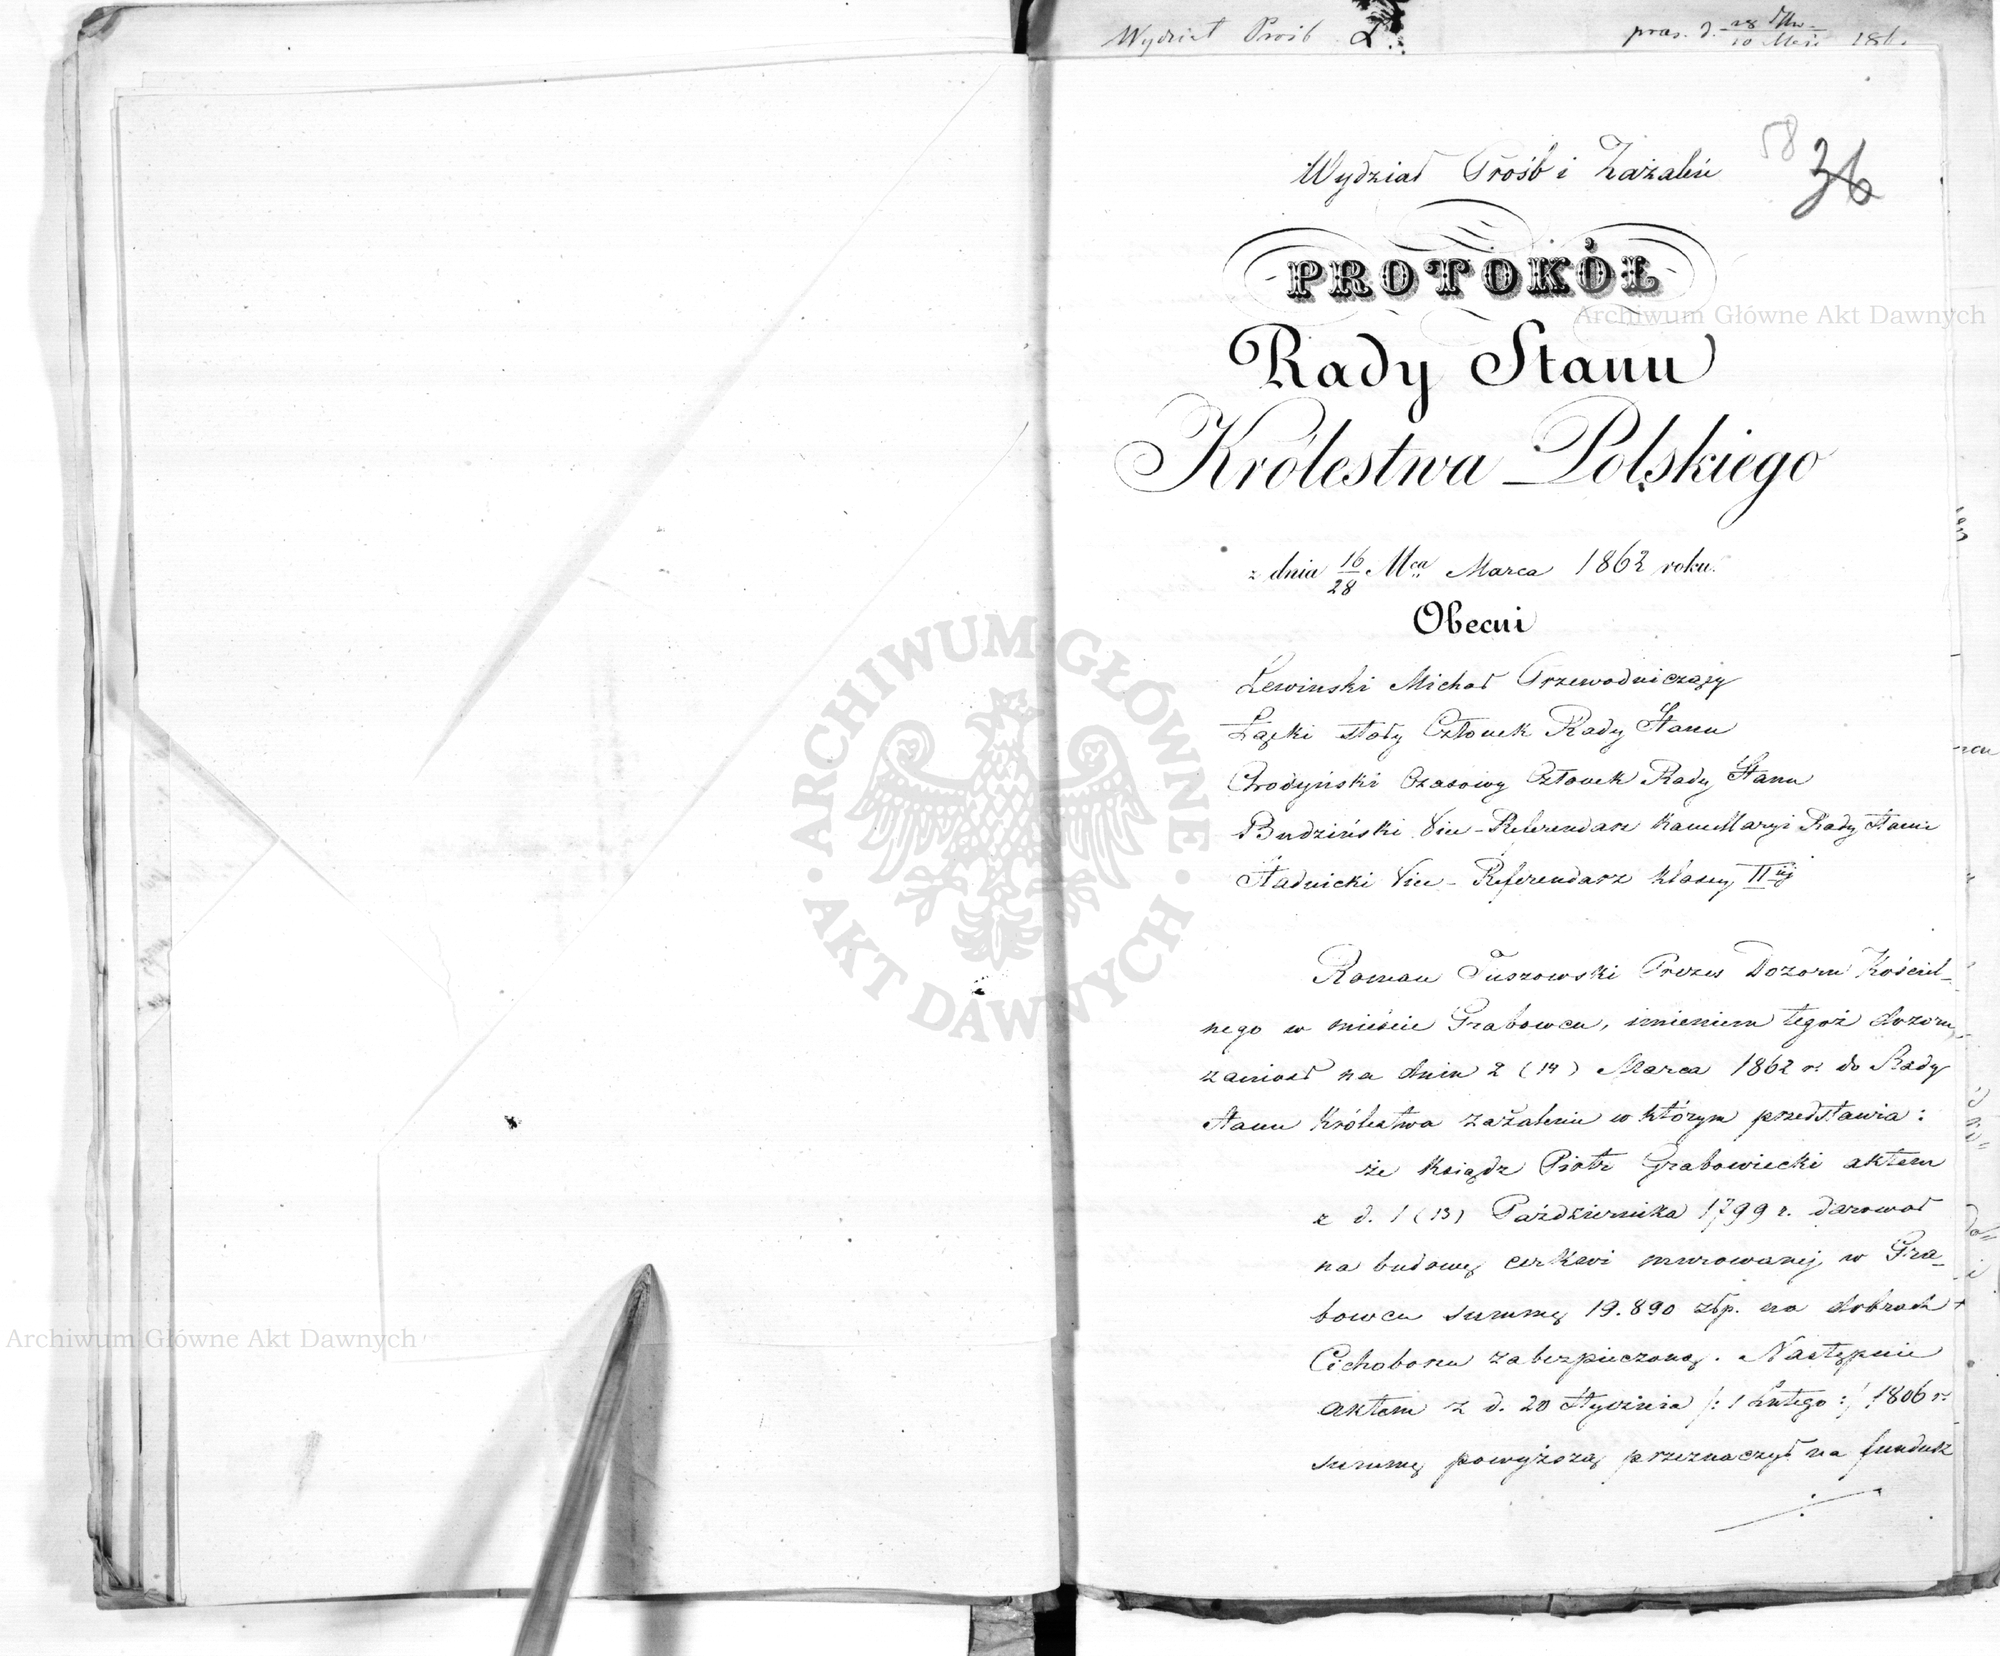 Wydział Próśb
pras. d. 28 / 10 186
Wydział Próśb i Zażaleń
58
36
PROTOKÓŁ
Rady Stanu
Królestwa Polskiego
z dnia 16/28 Mca Marca 1862 roku.
Obecni
Lewinski Michał Przewodniczący
Łąski stały Członek Rady Stanu
Czasowy Członek Rady Stanu
Budziński Vice-Referendarz Kancellaryi Rady Stanu
Stadnicki Vice-Referendarz klassy IIej
Roman Tuszowski Prezes Dozoru Kościel-
nego w mieście Grabowcu, imieniem tegoż dozoru,
zaniósł na dniu 2 (14) Marca 1862 r. do Rady
Stanu Królestwa zażalenie w którym przedstawia:
że ksiądz Piotr Grabowiecki aktem
z d. 1 (13) Października 1799 r. darował
na budowę cerkwi murowanej w Gra-
bowcu summę 19.890 złp. na dobrach
Cichoborzu zabezpieczoną. Następnie
aktem z d. 20 Stycznia /: 1 Lutego :/ 1806 r.
summę powyższą przeznaczył na fundusz
Archiwum Główne Akt Dawnych
ARCHIWUM GŁÓWNE · AKT DAWNYCH ·
Archiwum Główne Akt Dawnych